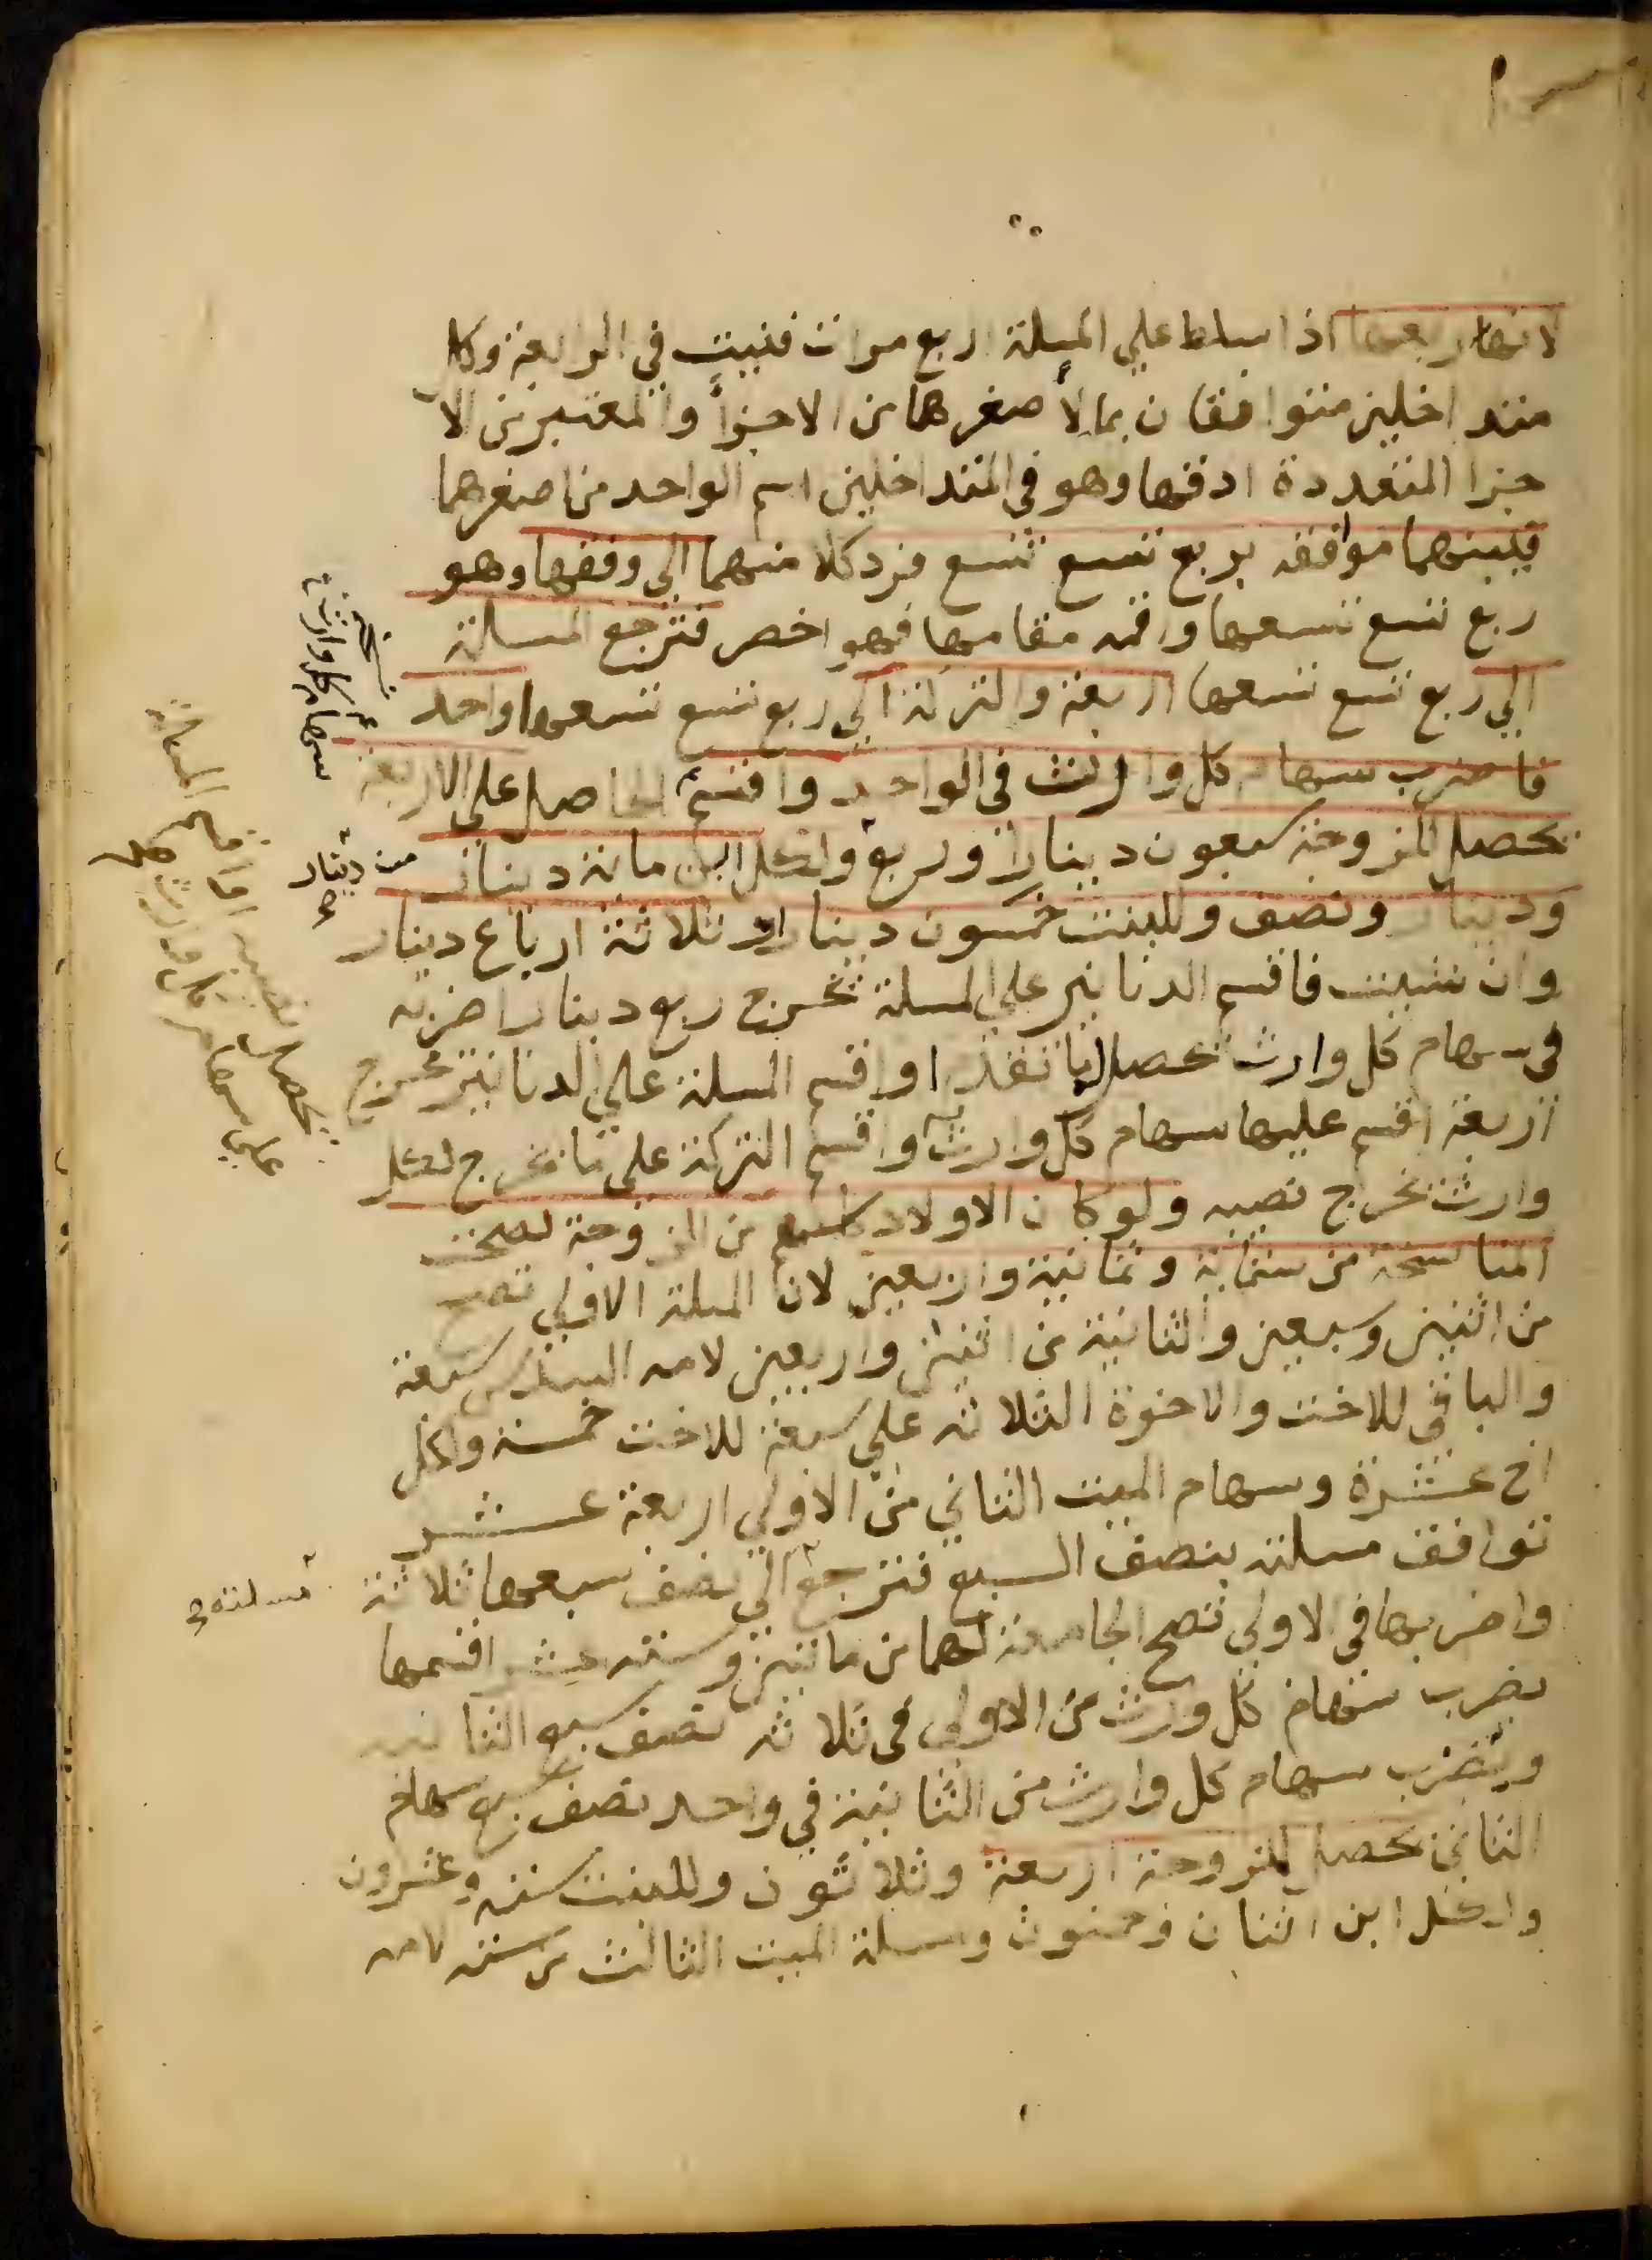 لانها ربعها اذا سلط علي المسلة اربع مرات فنيت في الرابعة وكل
متداخلين متوافقان بما لأصغرهما من الاجزأ والمعتبر من الا
جزا المتعددة ادقها وهو في المتداخلين اسم الواحد من اصغرهما
فبينهما موافقه بربع تسع تسع فرد كلا منهما الي وفقها وهو
ربع تسع تسعها واقمه مقامها فهو اخصر فترجع المسلة
الي ربع تسع تسعها اربعة والتركة الي ربع تسع تسعها واحد
فاضرب سهام كل وارث في الواحد واقسم الحاصل علي الاربعة
يحصل للزوجة سبعون دينارا وربع ولكل ابن مائة دينار
ودينار ونصف وللبنت خمسون دينارا وثلاثة ارباع دينار
وان شيت فاقسم الدنانير علي المسلة تخرج ربع دينار اضربه
في سهام كل وارث يحصل ما تقدر او اقسم المسلة علي الدنانير تخرج
اربعة اقسم عليها سهام كل وارث واقسم التركة علي ما تخرج لكل
وارث تخرج نصيبه ولو كان الاولاد كلهم من الزوجة لصحت
المناسخة من ستماية وثمانية واربعين لان المسلة الاولي تصح
من اثنين وسبعين والثانية من اثنين واربعين لامه السدس سبعة
والباقي للاخت والاخوة الثلاثه علي سبعة للاخت خمسة ولكل
اخ عشرة وسهام الميت الثاني من الاولي اربعة عشر
توافق مسلته بنصف السبع فترجع الي نصف سبعها ثلاثة
واضربها في الاولي تصح الجامعة لهما من مائتين وستة عشر اقسمها
بضرب سهام كل وارث من الاولي في ثلاثه نصف سبع الثانيه
وبضرب سهام كل وارث من الثانية في واحد نصف سبع سهام
الثاني يحصل للزوجة اربعة وثلاثون وللبنت ستة وعشرون
ولكل ابن اثنان وخمسون ومسلة الميت الثالث من ستة لامه
سهام كل وارث
من دينار
مسلته
علي سهام